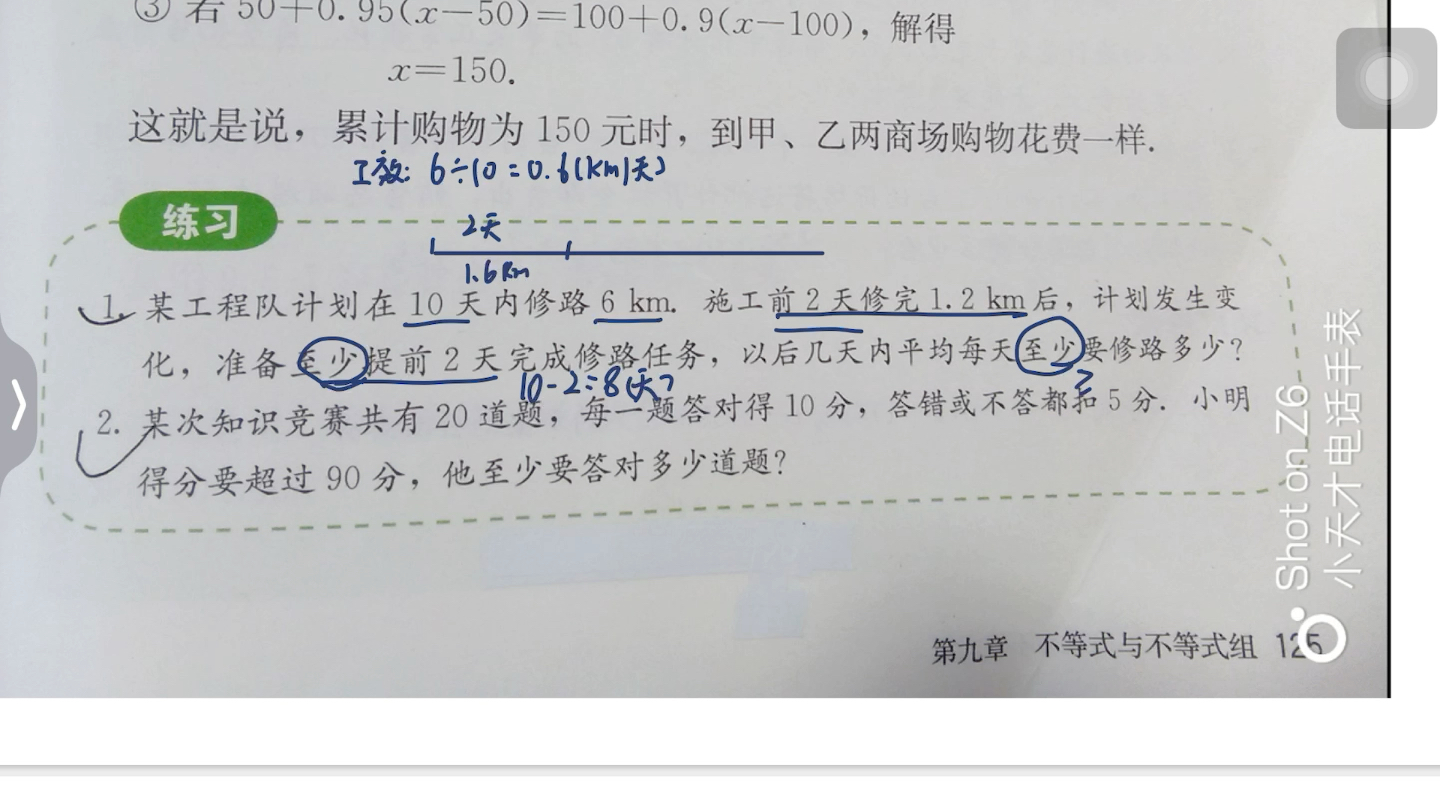 ③ 若 50+0.95(x-50)=100+0.9(x-100)，解得
x=150.
这就是说，累计购物为 150 元时，到甲、乙两商场购物花费一样.
工效: 6÷10=0.6(km/天)
练习
2天
1.6km
1. 某工程队计划在 10 天内修路 6 km. 施工前 2 天修完 1.2 km 后，计划发生变
化，准备至少提前 2 天完成修路任务，以后几天内平均每天至少要修路多少?
10-2=8(天)
≥
2. 某次知识竞赛共有 20 道题，每一题答对得 10 分，答错或不答都扣 5 分. 小明
得分要超过 90 分，他至少要答对多少道题?
第九章 不等式与不等式组 125
Shot on Z6
小天才电话手表